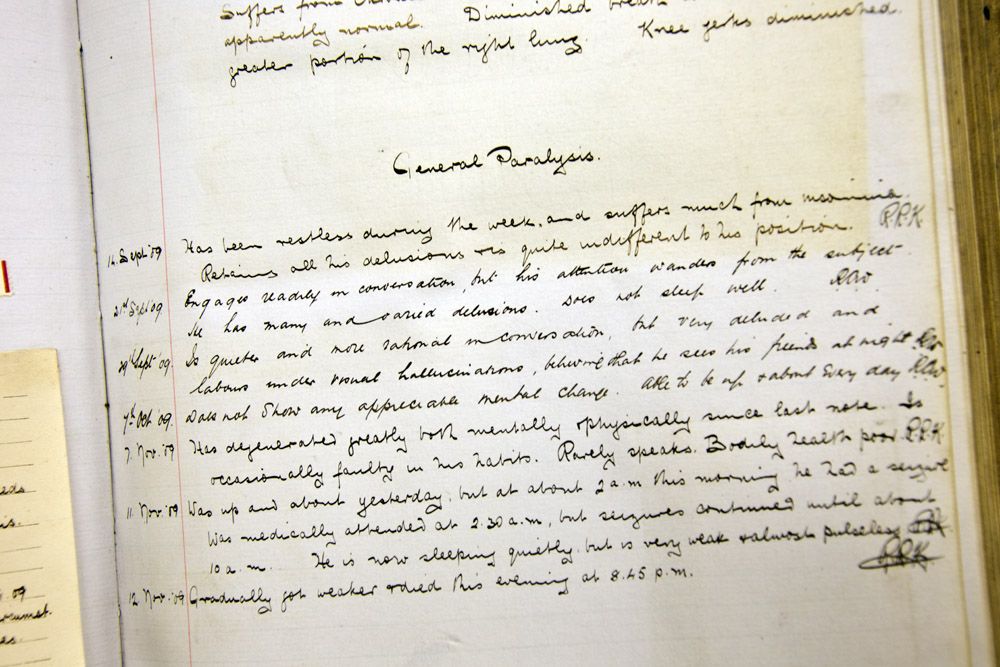 Suffers from
apparently normal. Diminished breath
greater portion of the right lung. Knee jerks diminished.
General Paralysis.
14 Sept '09 Has been restless during the week, and suffers much from insomnia.
Retains all his delusions & is quite indifferent to his position. R.P.K
21st Sept 09 Engages readily in conversation, but his attention wanders from the subject.
He has many and varied delusions. Does not sleep well. RAW.
29th Sept 09. Is quieter and more rational in conversation, but very deluded and
labours under visual hallucinations, believing that he sees his friends at night. RAW
7th Oct 09. Does not show any appreciable mental change. Able to be up & about every day RAW.
7. Nov. '09 Has degenerated greatly both mentally & physically since last note. Is
occasionally faulty in his habits. Rarely speaks. Bodily health poor. R.P.K.
11. Nov. '09 Was up and about yesterday, but at about 2 a.m this morning he had a seizure
Was medically attended at 2.30 a.m, but seizures continued until about
10 a.m. He is now sleeping quietly but is very weak & almost pulseless
R.P.K
12. Nov. '09 Gradually got weaker & died this evening at 8.45 p.m.
eds
is.
09
ocumet.
es.